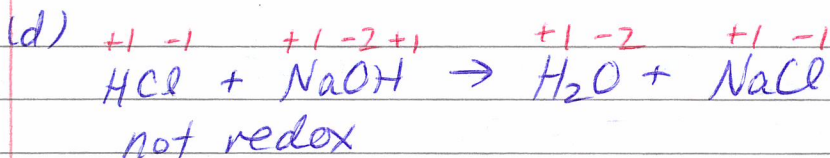 (d) +1 -1 +1 -2 +1 +1 -2 +1 -1
HCl + NaOH → H₂O + NaCl
not redox